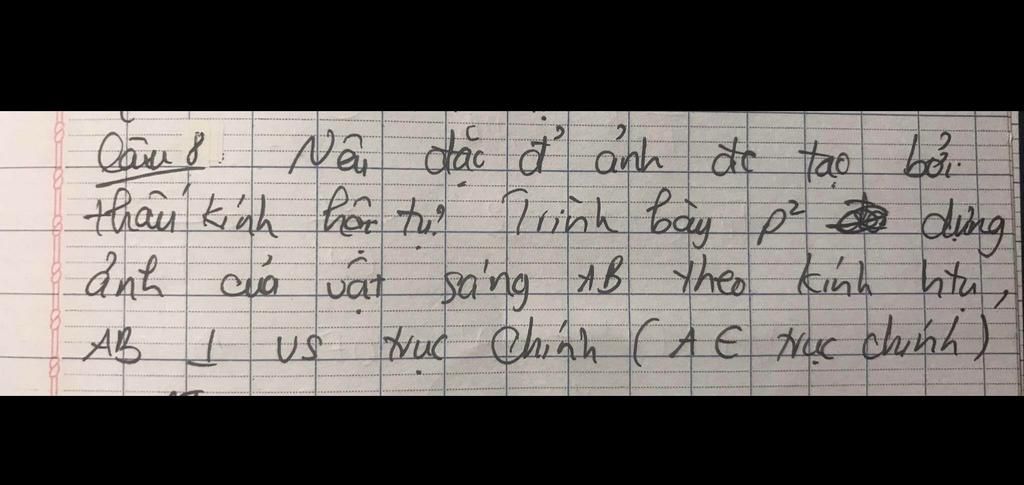 Câu 8: Nêu đặc đ' ảnh đc tạo bởi
thấu kính hội tụ? Trình bày p² dựng
ảnh của vật sáng AB theo kính htụ,
AB ⊥ vs trục chính (A ∈ trục chính)